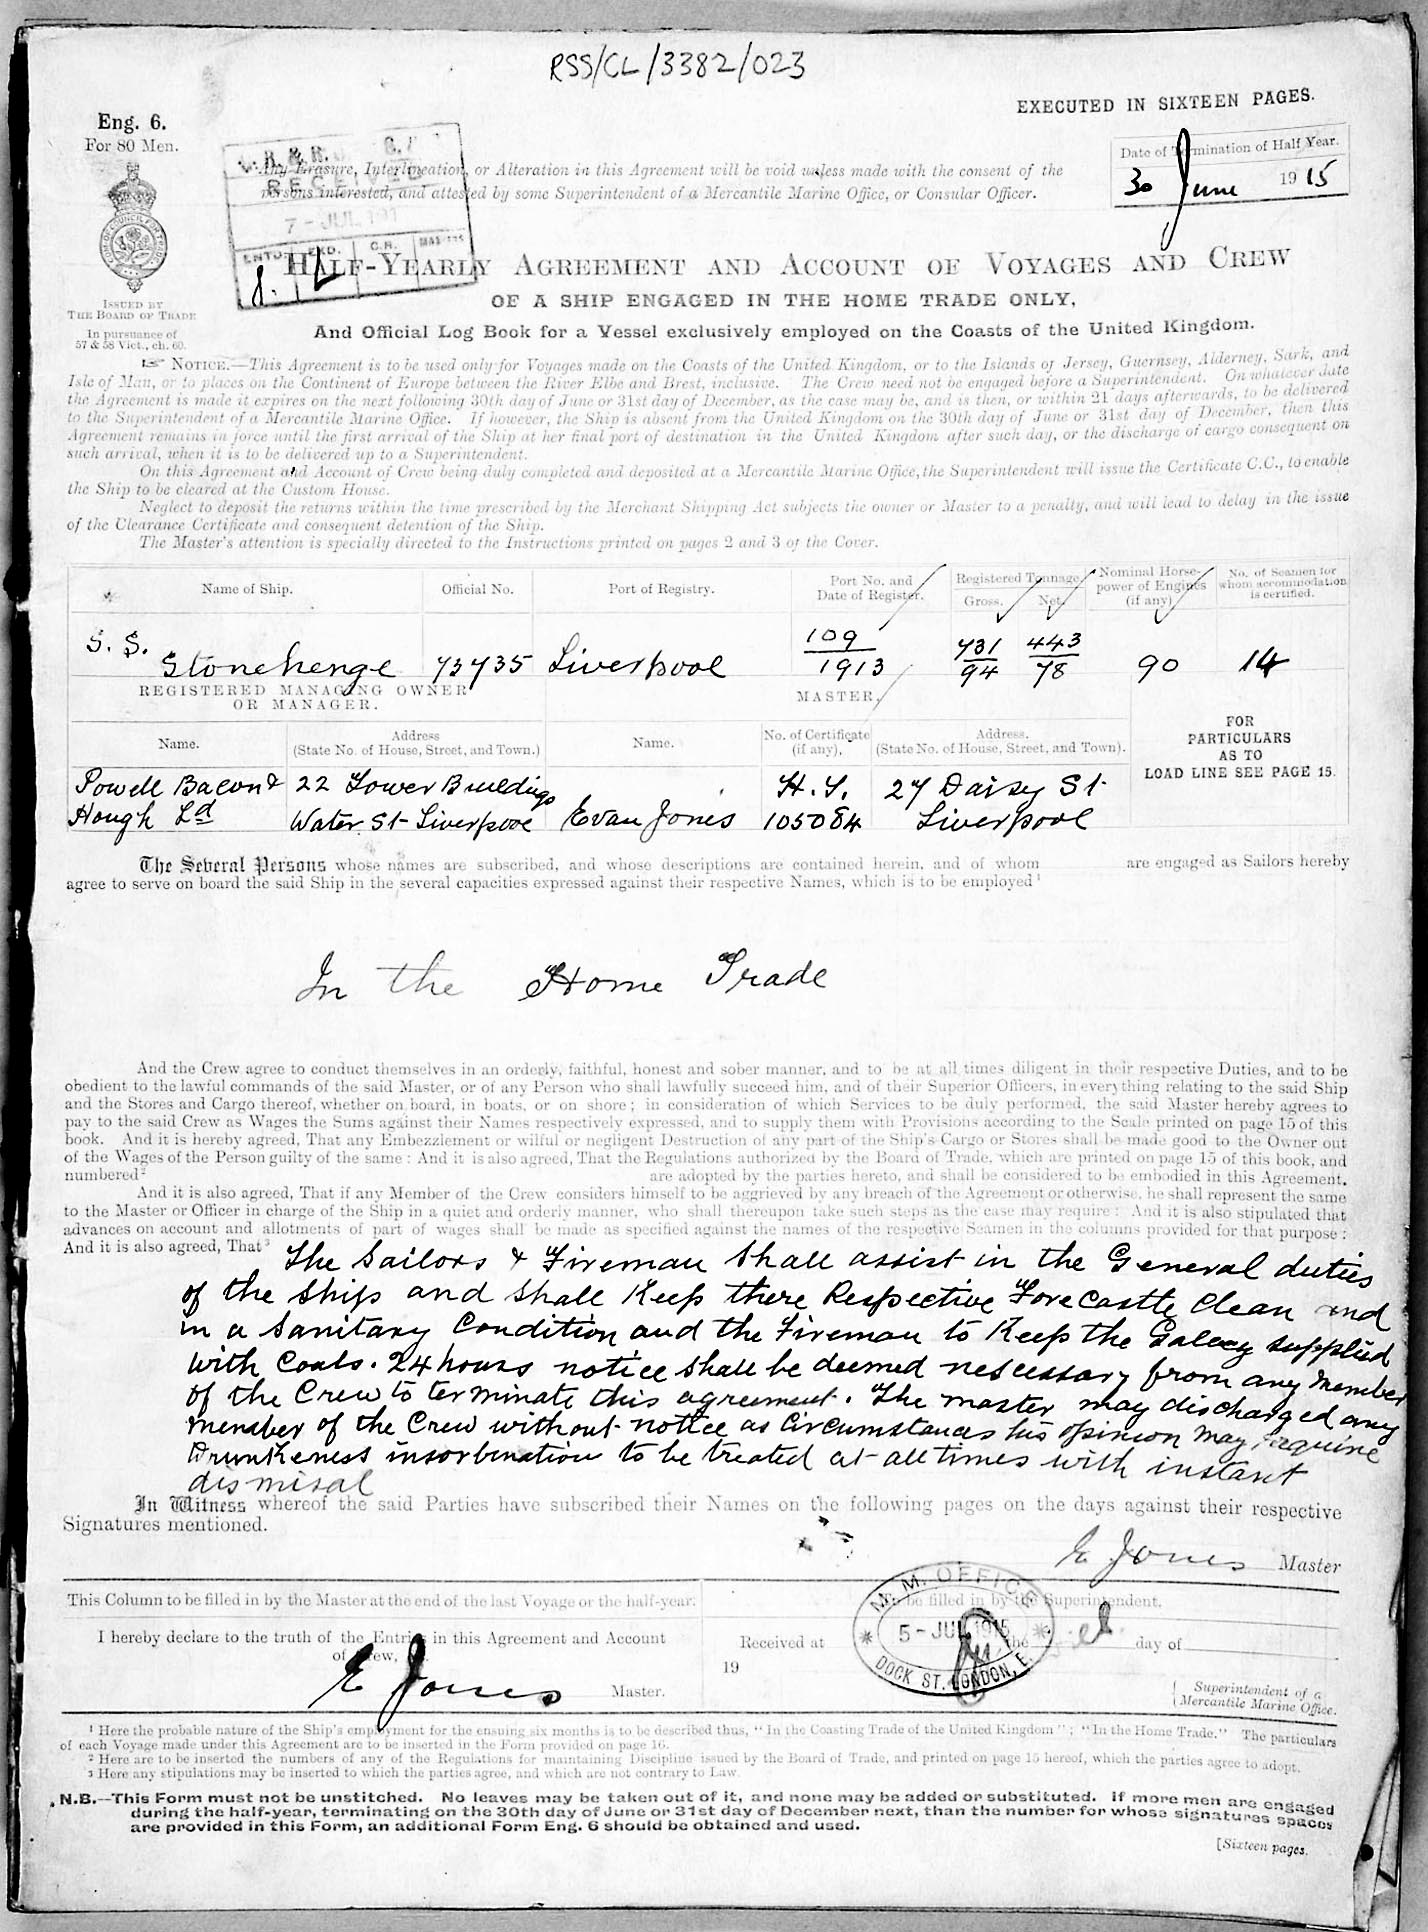 RSS/CL/3382/023
EXECUTED IN SIXTEEN PAGES.
Eng. 6.
For 80 Men.
Date of Termination of Half Year.
30 June 1915
Any Erasure, Interlineation, or Alteration in this Agreement will be void unless made with the consent of the
persons interested, and attested by some Superintendent of a Mercantile Marine Office, or Consular Officer.
7 - JUL 191
ENTD. EXD. C.R.
ISSUED BY
THE BOARD OF TRADE
In pursuance of
57 & 58 Vict., ch. 60.
HALF-YEARLY AGREEMENT AND ACCOUNT OF VOYAGES AND CREW
OF A SHIP ENGAGED IN THE HOME TRADE ONLY,
And Official Log Book for a Vessel exclusively employed on the Coasts of the United Kingdom.
☞ NOTICE.—This Agreement is to be used only for Voyages made on the Coasts of the United Kingdom, or to the Islands of Jersey, Guernsey, Alderney, Sark, and
Isle of Man, or to places on the Continent of Europe between the River Elbe and Brest, inclusive. The Crew need not be engaged before a Superintendent. On whatever date
the Agreement is made it expires on the next following 30th day of June or 31st day of December, as the case may be, and is then, or within 21 days afterwards, to be delivered
to the Superintendent of a Mercantile Marine Office. If however, the Ship is absent from the United Kingdom on the 30th day of June or 31st day of December, then this
Agreement remains in force until the first arrival of the Ship at her final port of destination in the United Kingdom after such day, or the discharge of cargo consequent on
such arrival, when it is to be delivered up to a Superintendent.
On this Agreement and Account of Crew being duly completed and deposited at a Mercantile Marine Office, the Superintendent will issue the Certificate C.C., to enable
the Ship to be cleared at the Custom House.
Neglect to deposit the returns within the time prescribed by the Merchant Shipping Act subjects the owner or Master to a penalty, and will lead to delay in the issue
of the Clearance Certificate and consequent detention of the Ship.
The Master's attention is specially directed to the Instructions printed on pages 2 and 3 of the Cover.
Name of Ship. Official No. Port of Registry. Port No. and Date of Register. Registered Tonnage Gross. Net. Nominal Horse-power of Engines (if any) No. of Seamen for whom accommodation is certified.
S. S. Stonehenge 73735 Liverpool 109/1913 731/94 443/78 90 14
REGISTERED MANAGING OWNER
OR MANAGER.
MASTER.
Name. Address (State No. of House, Street, and Town.) Name. No. of Certificate (if any). Address. (State No. of House, Street, and Town).
FOR
PARTICULARS
AS TO
LOAD LINE SEE PAGE 15.
Powell Bacon & 22 Tower Buildings H.T. 27 Daisy St
Hough Ld Water St Liverpool Evan Jones 105084 Liverpool
The Several Persons whose names are subscribed, and whose descriptions are contained herein, and of whom are engaged as Sailors hereby
agree to serve on board the said Ship in the several capacities expressed against their respective Names, which is to be employed ¹
In the Home Trade
And the Crew agree to conduct themselves in an orderly, faithful, honest and sober manner, and to be at all times diligent in their respective Duties, and to be
obedient to the lawful commands of the said Master, or of any Person who shall lawfully succeed him, and of their Superior Officers, in everything relating to the said Ship
and the Stores and Cargo thereof, whether on board, in boats, or on shore; in consideration of which Services to be duly performed, the said Master hereby agrees to
pay to the said Crew as Wages the Sums against their Names respectively expressed, and to supply them with Provisions according to the Scale printed on page 15 of this
book. And it is hereby agreed, That any Embezzlement or wilful or negligent Destruction of any part of the Ship's Cargo or Stores shall be made good to the Owner out
of the Wages of the Person guilty of the same: And it is also agreed, That the Regulations authorized by the Board of Trade, which are printed on page 15 of this book, and
numbered ² are adopted by the parties hereto, and shall be considered to be embodied in this Agreement.
And it is also agreed, That if any Member of the Crew considers himself to be aggrieved by any breach of the Agreement or otherwise, he shall represent the same
to the Master or Officer in charge of the Ship in a quiet and orderly manner, who shall thereupon take such steps as the case may require: And it is also stipulated that
advances on account and allotments of part of wages shall be made as specified against the names of the respective Seamen in the columns provided for that purpose:
And it is also agreed, That ³ The Sailors & Fireman Shall assist in the General duties
of the Ship and Shall Keep there Respective Forecastle Clean and
in a Sanitary Condition and the Fireman to Keep the Galley supplied
with Coals. 24 hours notice shall be deemed nescessary from any member
of the Crew to terminate this agreement. The master may discharged any
member of the Crew without notice as Circumstances his opinion may require
Drunkeness insorbination to be treated at all times with instant
dismisal
In Witness whereof the said Parties have subscribed their Names on the following pages on the days against their respective
Signatures mentioned.
E Jones Master
This Column to be filled in by the Master at the end of the last Voyage or the half-year.
I hereby declare to the truth of the Entries in this Agreement and Account
of Crew,
E Jones Master.
To be filled in by the Superintendent.
Received at the day of
19
M. M. OFFICE
5 - JUL 1915
DOCK ST. LONDON, E.
Superintendent of a
Mercantile Marine Office.
¹ Here the probable nature of the Ship's employment for the ensuing six months is to be described thus, "In the Coasting Trade of the United Kingdom"; "In the Home Trade." The particulars
of each Voyage made under this Agreement are to be inserted in the Form provided on page 16.
² Here are to be inserted the numbers of any of the Regulations for maintaining Discipline issued by the Board of Trade, and printed on page 15 hereof, which the parties agree to adopt.
³ Here any stipulations may be inserted to which the parties agree, and which are not contrary to Law.
N.B.—This Form must not be unstitched. No leaves may be taken out of it, and none may be added or substituted. If more men are engaged
during the half-year, terminating on the 30th day of June or 31st day of December next, than the number for whose signatures spaces
are provided in this Form, an additional Form Eng. 6 should be obtained and used.
[Sixteen pages.